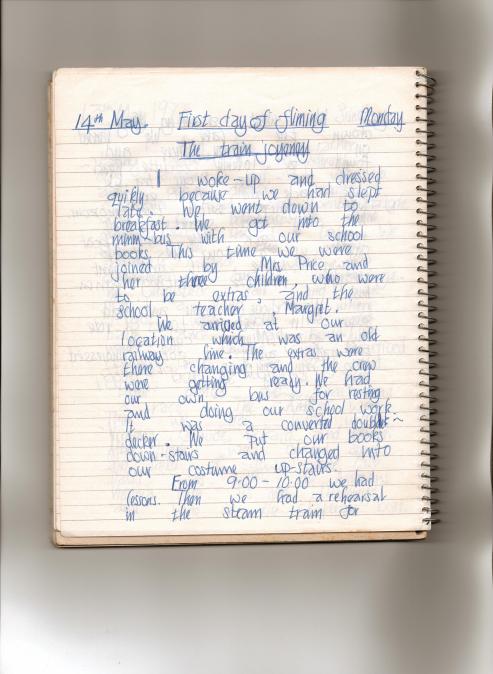 14th May. First day of fliming Monday
The train joyeney
I woke-up and dressed
quikly because we had slept
late. We went down to
breakfast. We got into the
minni-bus with our school
books. This time we were
joined by Mrs Price and
her three children, who were
to be extras, and the
school teacher, Margret.
We arriged at our
location which was an old
railway line. The extras were
there changing and the crew
were getting ready. We had
our own bus for resting
and doing our school work.
It was a converted double~
decker. We put our books
down-stairs and changed into
our costume up-stairs.
From 9:00 - 10:00 we had
lessons. Then we had a rehearsal
in the steam train for